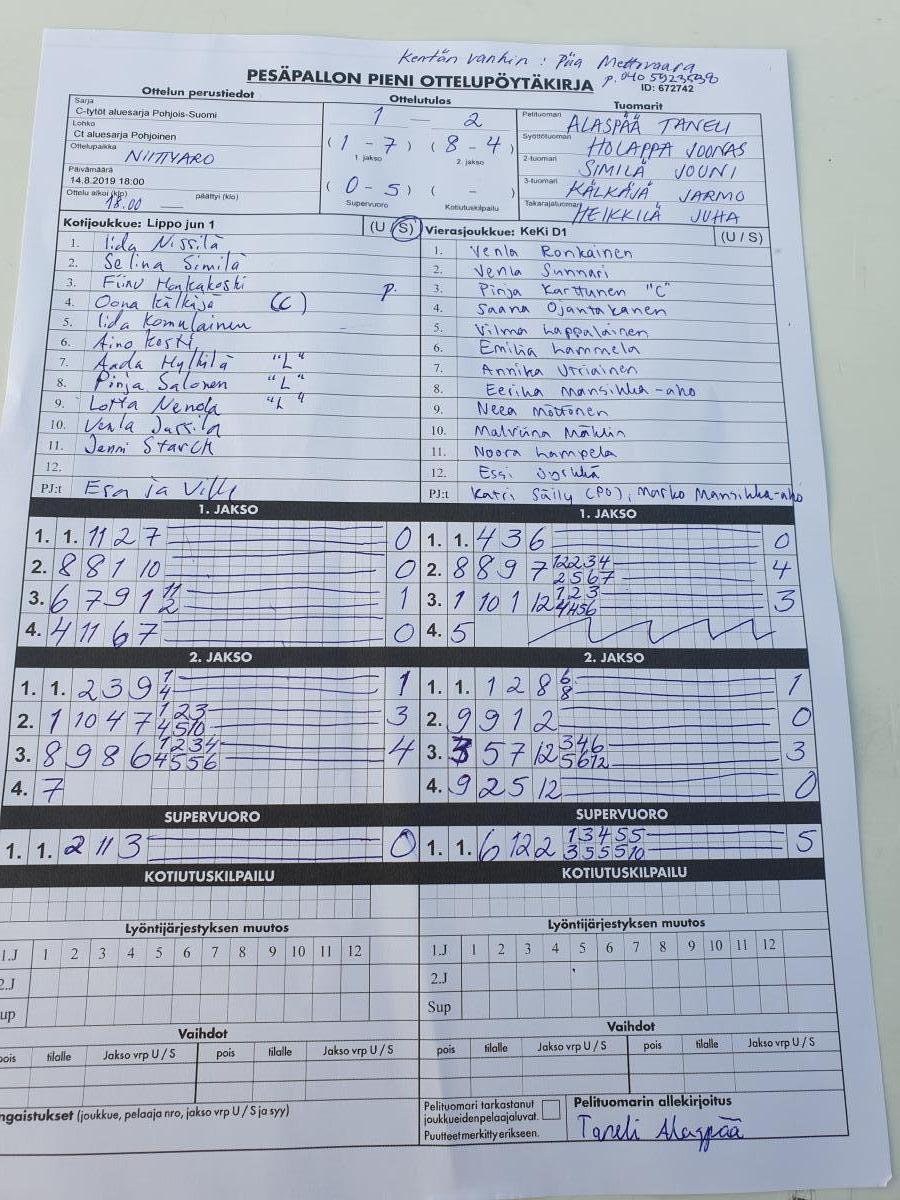 Kentän vanhin : Pia Mettovaara
PESÄPALLON PIENI OTTELUPÖYTÄKIRJA
p. 040 5923598
ID: 672742
Ottelun perustiedot
Ottelutulos
Tuomarit
Sarja
C-tytöt aluesarja Pohjois-Suomi
Lohko
Ct aluesarja Pohjoinen
Ottelupaikka NIITTYARO
Päivämäärä
14.8.2019 18:00
Ottelu alkoi (klo) 18.00 päättyi (klo)
1 — 2
(1 - 7) (8 - 4)
1. jakso 2. jakso
(0 - 5) ( - )
Supervuoro Kotiutuskilpailu
Pelituomari ALASPÄÄ TANELI
Syöttötuomari HOLAPPA JOONAS
2-tuomari SIMILÄ JOUNI
3-tuomari KÄLKÄJÄ JARMO
Takarajatuomari HEIKKILÄ JUHA
Kotijoukkue: Lippo jun 1 (U / S)
1. Iida Nissilä
2. Selina Similä
3. Fiinu Honkakoski P.
4. Oona Kälkäjä (C)
5. Iida Komulainen
6. Aino Koski
7. Aada Hylkilä "L"
8. Pinja Salonen "L"
9. Lotta Nenola "L"
10. Venla Jussila
11. Jenni Starck
12.
PJ:t Esa ja Ville
Vierasjoukkue: KeKi D1 (U / S)
1. Venla Ronkainen
2. Venla Sunnari
3. Pinja Karttunen "C"
4. Saana Ojantakanen
5. Vilma Lappalainen
6. Emilia Lammela
7. Annika Urriainen
8. Eerika Mansikka-aho
9. Neea Möttönen
10. Malviina Mählin
11. Noora Lampela
12. Essi
PJ:t Katri Säily (PO), Marko Mansikka-aho
1. JAKSO
1. 1. 11 2 7 0
2. 8 8 1 10 0
3. 6 7 9 1 11 2 1
4. 4 11 6 7 0
1. JAKSO
1. 1. 4 3 6 0
2. 8 8 9 7 12234 2567 4
3. 1 10 1 12 123 4456 3
4. 5
2. JAKSO
1. 1. 2 3 9 1 4 1
2. 1 10 4 7 123 4510 3
3. 8 9 8 6 1234 4556 4
4. 7
2. JAKSO
1. 1. 1 2 8 6 8 1
2. 9 9 1 2 0
3. 3 5 7 12 346 5612 3
4. 9 2 5 12 0
SUPERVUORO
1. 1. 2 11 3 0
SUPERVUORO
1. 1. 6 12 2 13455 355510 5
KOTIUTUSKILPAILU
KOTIUTUSKILPAILU
Lyöntijärjestyksen muutos
1.J 1 2 3 4 5 6 7 8 9 10 11 12
2.J
up
Lyöntijärjestyksen muutos
1.J 1 2 3 4 5 6 7 8 9 10 11 12
2.J
Sup
Vaihdot
pois tilalle Jakso vrp U / S pois tilalle Jakso vrp U / S
Vaihdot
pois tilalle Jakso vrp U / S pois tilalle Jakso vrp U / S
ngaistukset (joukkue, pelaaja nro, jakso vrp U / S ja syy)
Pelituomari tarkastanut
joukkueidenpelaajaluvat.
Puutteetmerkittyerikseen.
Pelituomarin allekirjoitus
Taneli Alaspää